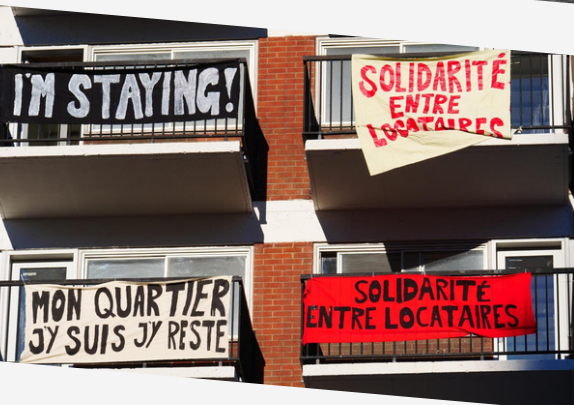 I'M STAYING!
SOLIDARITÉ
ENTRE
LOCATAIRES
MON QUARTIER
J'Y SUIS J'Y RESTE
SOLIDARITÉ
ENTRE LOCATAIRES